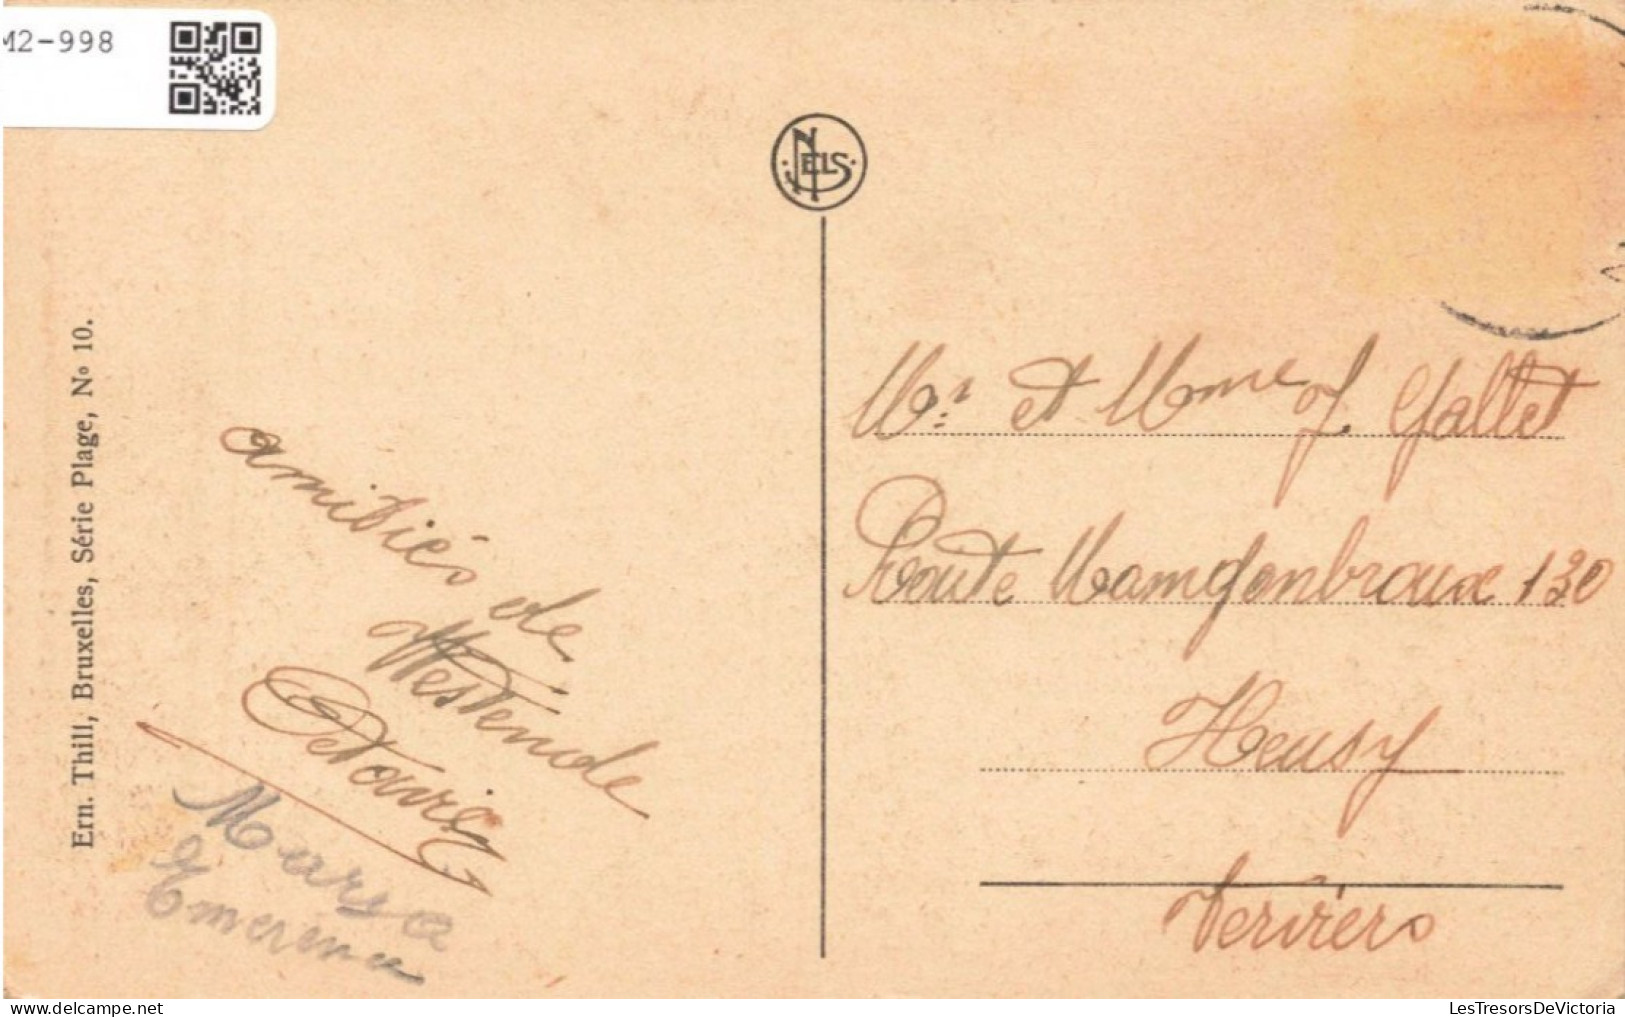 M2-998
NELS
Ern. Thill, Bruxelles, Série Plage, No 10.
amitiés de
Westende
Octavie
Maria
Emerence
Mr et Mme J. Gallet
Route Mangonbroux 130
Heusy
Verviers
LesTresorsDeVictoria
www.delcampe.net